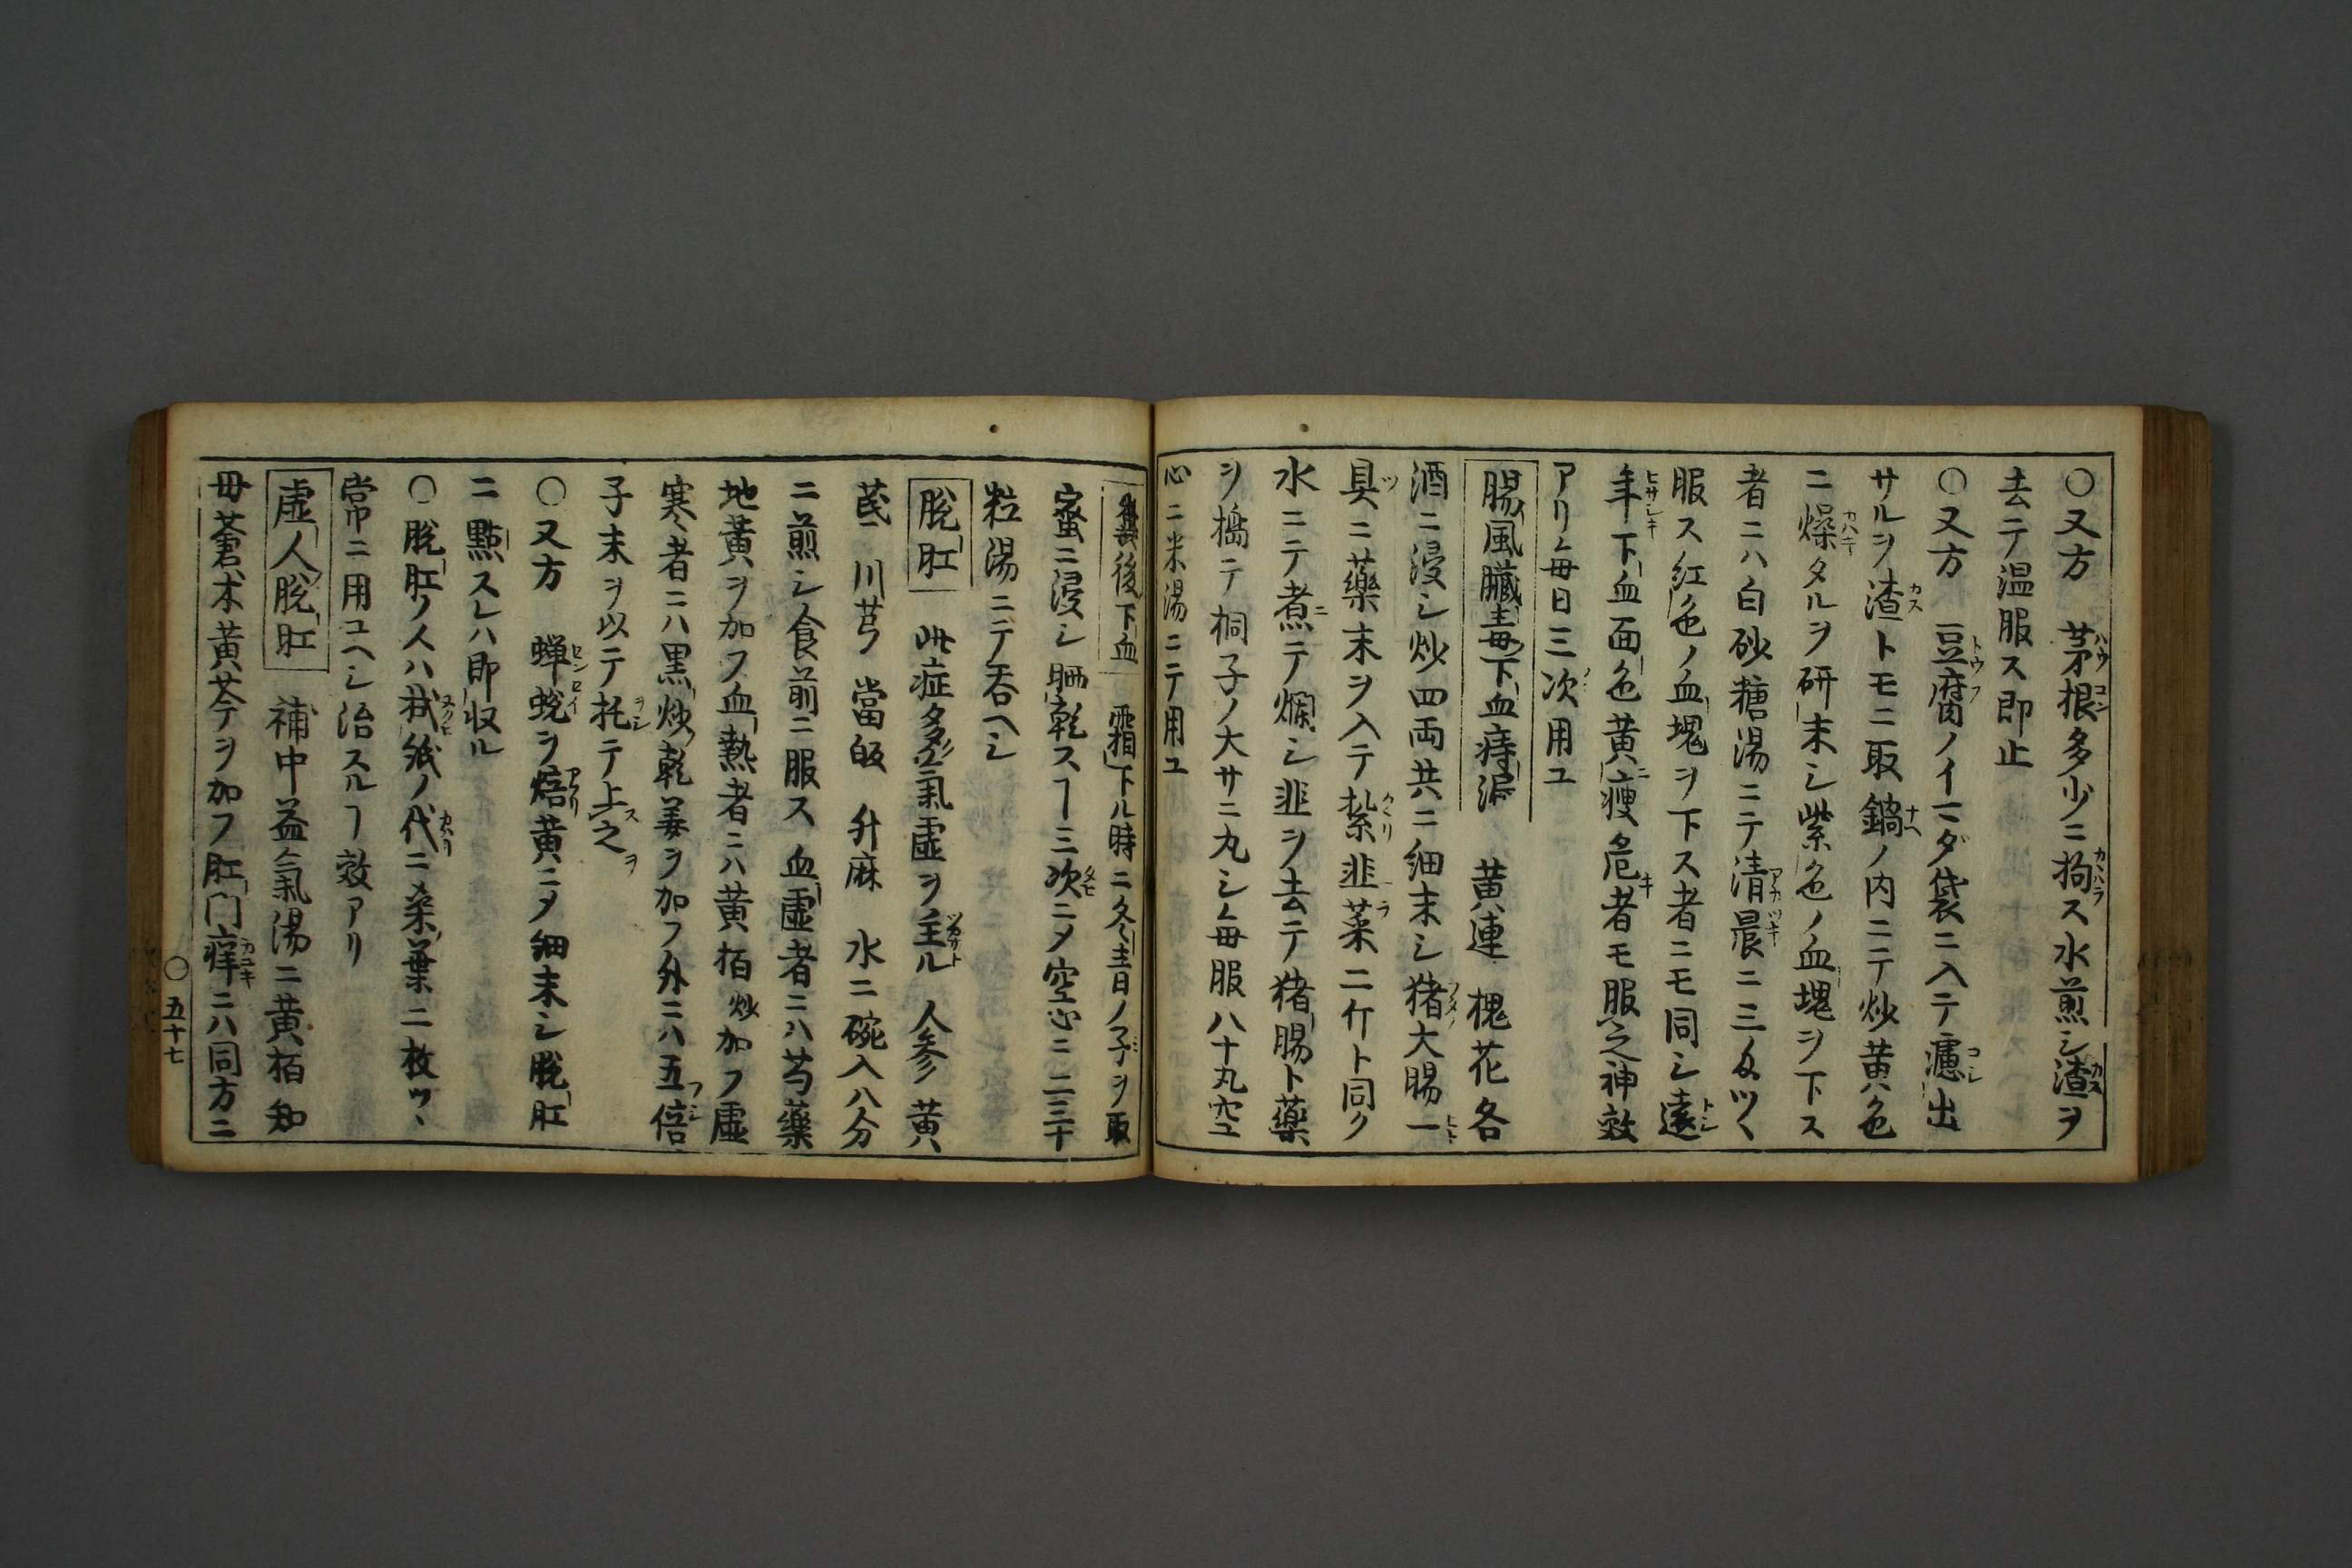 〇又方　茅根多少ニ拘ス水煎シ渣ヲ
去テ温服ス即止
〇又方　豆腐ノイマダ袋ニ入テ濾出
サルヲ渣トモニ取鍋ノ内ニテ炒黄色
ニ燥タルヲ研末シ紫色ノ血塊ヲ下ス
者ニハ白砂糖湯ニテ清晨ニ三匁ツヽ
服ス紅色ノ血塊ヲ下ス者ニモ同シ遠
年下血面色黄ニ痩危者モ服之神效
アリ毎日三次用ユ
腸風臓毒下血痔漏　黄連　槐花各
酒ニ浸シ炒四両共ニ細末シ猪大腸一
具ニ藥末ヲ入テ紮韭菜二斤ト同ク
水ニテ煮テ爛シ韭ヲ去テ猪腸ト藥
ヲ搗テ桐子ノ大サニ丸シ毎服八十丸空
心ニ米湯ニテ用ユ
糞後下血　霜下ル時ニ冬圭日ノ子ヲ取
蜜ニ浸シ晒乾スヿ三次ニメ空心ニ二三十
粒湯ニテ呑ヘシ
脱肛　此症多ハ氣虚ヲ主ル　人参　黄
茋　川芎　當皈　升麻　水二碗入八分
ニ煎シ食前ニ服ス血虚者ニハ芍藥
地黄ヲ加フ血熱者ニハ黄栢炒加フ虚
寒者ニハ黒炒乾姜ヲ加フ外ニハ五倍
子末ヲ以テ托テ上之
〇又方　蝉蛻ヲ焙黄ニメ細末シ脱肛
ニ點スレハ即収ル
〇脱肛ノ人ハ拭紙ノ代ニ桑葉二枚ツヽ
常ニ用ユヘシ治スルヿ效アリ
虚人脱肛　補中益氣湯ニ黄栢　知
母蒼朮黄芩ヲ加フ肛門痒ニハ同方ニ
〇五十七